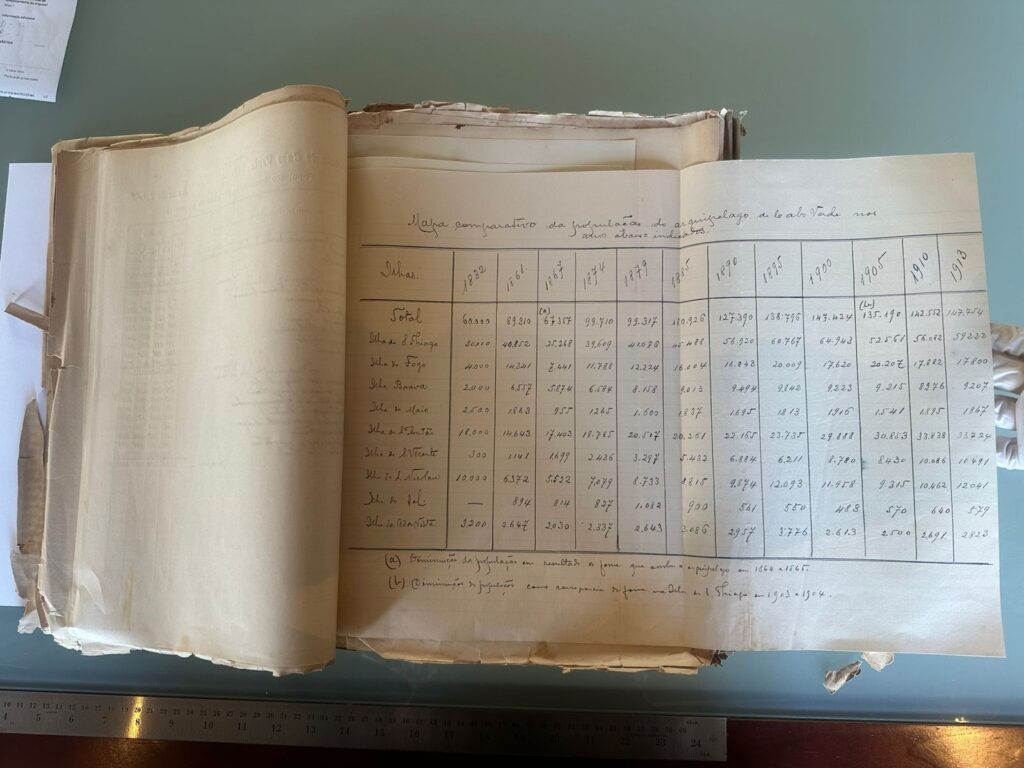 Mapa comparativo da população do arquipelago de Cabo Verde nos
anos abaixo indicados.
Ilhas. 1832 1861. 1867 1874 1879 1885 1890 1895 1900 1905 1910 1913
(a) (b)
Total 60.000 89.310 67.357 99.710 99.317 110.926 127.390 138.796 147.424 135.190 142.552 147.754
Ilha de S. Thiago 20.000 40.852 25.268 39.609 41.078 45.488 56.920 60.767 64.943 52.561 56.082 59222
Ilha do Fogo 4.000 14.341 7.441 11.788 12.224 16.004 16.843 20.009 17.620 20.207 17.882 17.800
Ilha Brava 2.000 6.557 5.874 6.584 8.158 9.013 9.494 9.842 9223 9.215 8976 9207
Ilha do Maio 2.500 1.863 955 1265 1.600 1.837 1.695 1.813 1916 1.541 1.895 1867
Ilha de Stº Antão 18.000 14.643 17.403 18.785 20.517 20.251 22.155 23.735 29.888 30.853 33.838 33.724
Ilha de S. Vicente 300 1.141 1.699 2.436 3.297 5.432 6.884 6.211 8.780 8430 10.086 10.491
Ilha de S. Nicolau 10.000 6.372 5.522 7.079 8.733 8815 9.874 12.093 11.958 9.315 10.462 12.041
Ilha do Sal — 894 814 827 1.082 900 561 550 483 570 640 579
Ilha da Boa Vista 3.200 2.647 2.030 2.337 2.643 3.086 2957 3.776 2.613 2.500 2.691 2.823
(a) Diminuição da população em resultado da fome que assolou o arquipelago em 1864 a 1865.
(b) Diminuição de população como consequencia da fome na Ilha de S. Thiago em 1903 a 1904.